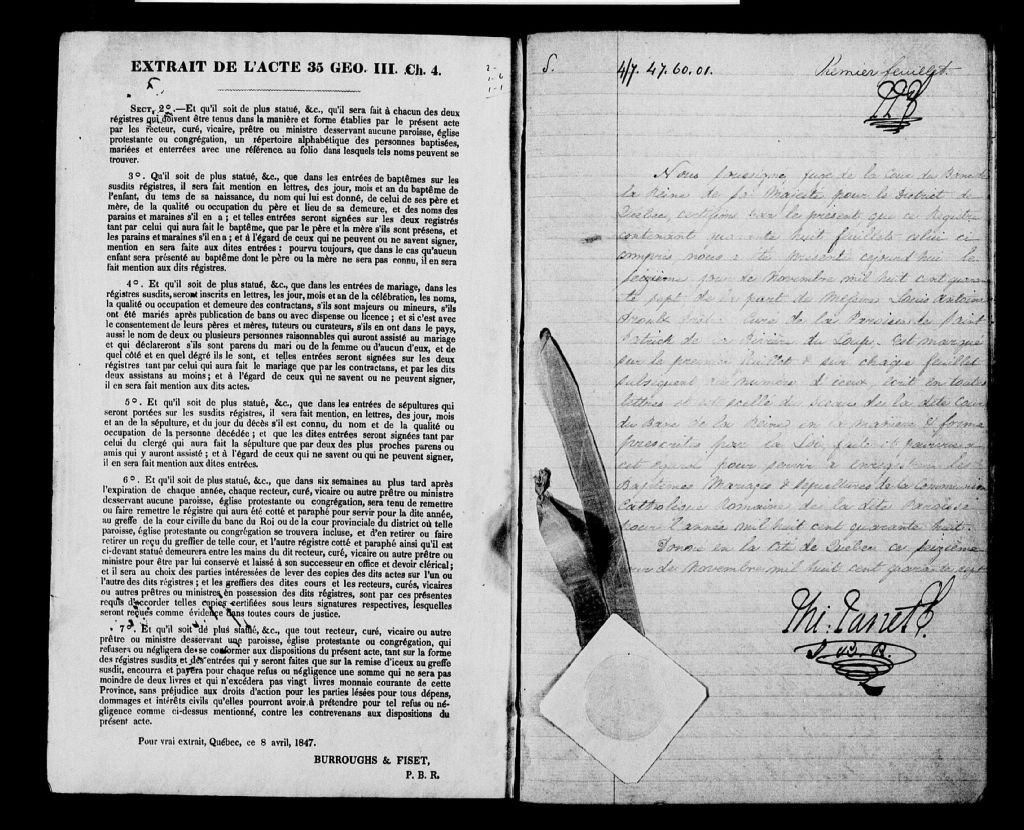 EXTRAIT DE L'ACTE 35 GEO. III. Ch. 4.
SECT. 2º.—Et qu'il soit de plus statué, &c., qu'il sera fait à chacun des deux
régistres qui doivent être tenus dans la manière et forme établies par le présent acte
par les recteur, curé, vicaire, prêtre ou ministre desservant aucune paroisse, église
protestante ou congrégation, un répertoire alphabétique des personnes baptisées,
mariées et enterrées avec une référence au folio dans lesquels tels noms peuvent se
trouver.
3º. Qu'il soit de plus statué, &c., que dans les entrées de baptêmes sur les
susdits régistres, il sera fait mention en lettres, des jour, mois et an du baptême de
l'enfant, du tems de sa naissance, du nom qui lui est donné, de celui de ses père et
mère, de la qualité ou occupation du père et lieu de sa demeure, et des noms des
parains et maraines s'il en a ; et telles entrées seront signées sur les deux registres
tant par celui qui aura fait le baptême, que par le père et la mère s'ils sont présens, et
les parains et maraines s'il en a ; et à l'égard de ceux qui ne peuvent ou ne savent signer,
mention en sera faite aux dites entrées : pourvu toujours, que dans le cas qu'aucun
enfant sera présenté au baptême dont le père ou la mère ne sera pas connu, il en sera
fait mention aux dits régistres.
4º. Et qu'il soit de plus statué, &c., que dans les entrées de mariage, dans les
régistres susdits, seront inscrits en lettres, les jour, mois et an de la célébration, les noms,
la qualité ou occupation et demeure des contractans, s'ils sont majeurs ou mineurs, s'ils
ont été mariés après publication de bans ou avec dispense ou licence ; et si c'est avec
le consentement de leurs pères et mères, tuteurs ou curateurs, s'ils en ont dans le pays,
aussi le nom de deux ou plusieurs personnes raisonnables qui auront assisté au mariage
et qui déclareront s'ils sont parens du mari ou de la femme ou d'aucun d'eux, et de
quel côté et en quel dégré ils le sont, et telles entrées seront signées sur les deux
régistres tant par celui qui aura fait le mariage que par les contractans, et par les dits
deux assistans au moins ; et à l'égard de ceux qui ne savent ou ne peuvent signer,
il en sera fait mention aux dits actes.
5º. Et qu'il soit de plus statué, &c., que dans les entrées de sépultures qui
seront portées sur les susdits régistres, il sera fait mention, en lettres, des jour, mois
et an de la sépulture, et du jour du décès s'il est connu, du nom et de la qualité ou
occupation de la personne décédée ; et que les dites entrées seront signées tant par
celui du clergé qui aura fait la sépulture que par deux des plus proches parens ou
amis qui y auront assisté ; et à l'égard de ceux qui ne savent ou qui ne peuvent signer,
il en sera fait mention aux dites entrées.
6º. Et qu'il soit de plus statué, &c., que dans six semaines au plus tard après
l'expiration de chaque année, chaque recteur, curé, vicaire ou autre prêtre ou ministre
desservant aucune paroisse, église protestante ou congrégation, sera tenu de remettre
ou faire remettre le régistre qui aura été cotté et paraphé pour servir pour la dite année,
au greffe de la cour civille du banc du Roi ou de la cour provinciale du district où telle
paroisse, église protestante ou congrégation se trouvera incluse, et d'en retirer ou faire
retirer un reçu du greffier de telle cour, et l'autre régistre cotté et paraphé ainsi qu'il est
ci-devant statué demeurera entre les mains du dit recteur, curé, vicaire ou autre prêtre ou
ministre pour être par lui conservé et laissé à son successeur en office et devoir clérical ;
et il sera au choix des parties intéressées de lever des copies des dits actes sur l'un ou
l'autre des dits régistres ; et les greffiers des dites cours et les recteurs, curés, vicaires
ou autres prêtres ou ministres en possession des dits régistres, sont par ces présentes
requis d'accorder telles copies certifiées sous leurs signatures respectives, lesquelles
seront reçues comme évidence dans toutes cours de justice.
7º. Et qu'il soit de plus statué, &c., que tout recteur, curé, vicaire ou autre
prêtre ou ministre desservant une paroisse, église protestante ou congrégation, qui
refusera ou négligera de se conformer aux dispositions du présent acte, tant sur la forme
des régistres susdits et des entrées qui y seront faites que sur la remise d'iceux au greffe
susdit, encourra et payera pour chaque refus ou négligence une somme qui ne sera pas
moindre de deux livres et qui n'excédera pas vingt livres monnaie courante de cette
Province, sans préjudice aux droits d'action pour les parties lésées pour tous dépens,
dommages et intérêts civils qu'elles pourront avoir à prétendre pour tel refus ou né-
gligence comme ci-dessus mentionné, contre les contrevenans aux dispositions du
présent acte.
Pour vrai extrait, Québec, ce 8 avril, 1847.
BURROUGHS & FISET,
P. B. R.
S. 4/7. 47. 60. 01. Premier feuillet.
Nous soussigné, Juge de la Cour du Banc de
la Reine de Sa Majesté pour le District de
Québec, certifions par le présent que ce Régistre
contenant huit feuillets celui ci
compris nous a été présenté ce jourd'hui le
seizième jour de Novembre mil huit cent quaran
te sept de la part de Messire Louis Antoine
Curé de la Paroisse de Saint
Patrick de la Rivière du Loup est marqué
par le premier feuillet & sur chaque feuillet
subséquent du numéro d'iceux écrit en toutes
lettres et est scellé du sceau de la dite Cour
du Banc de la Reine en la manière & forme
prescrites par la loi,
est égard pour servir à enrégistrer les
Baptêmes Mariages & Sépultures de la Communion
Catholique Romaine de la dite Paroisse
pour l'année mil huit cent quarante huit.
Donné en la Cité de Québec ce seizième
jour de Novembre mil huit cent quarante sept
J. B. R.